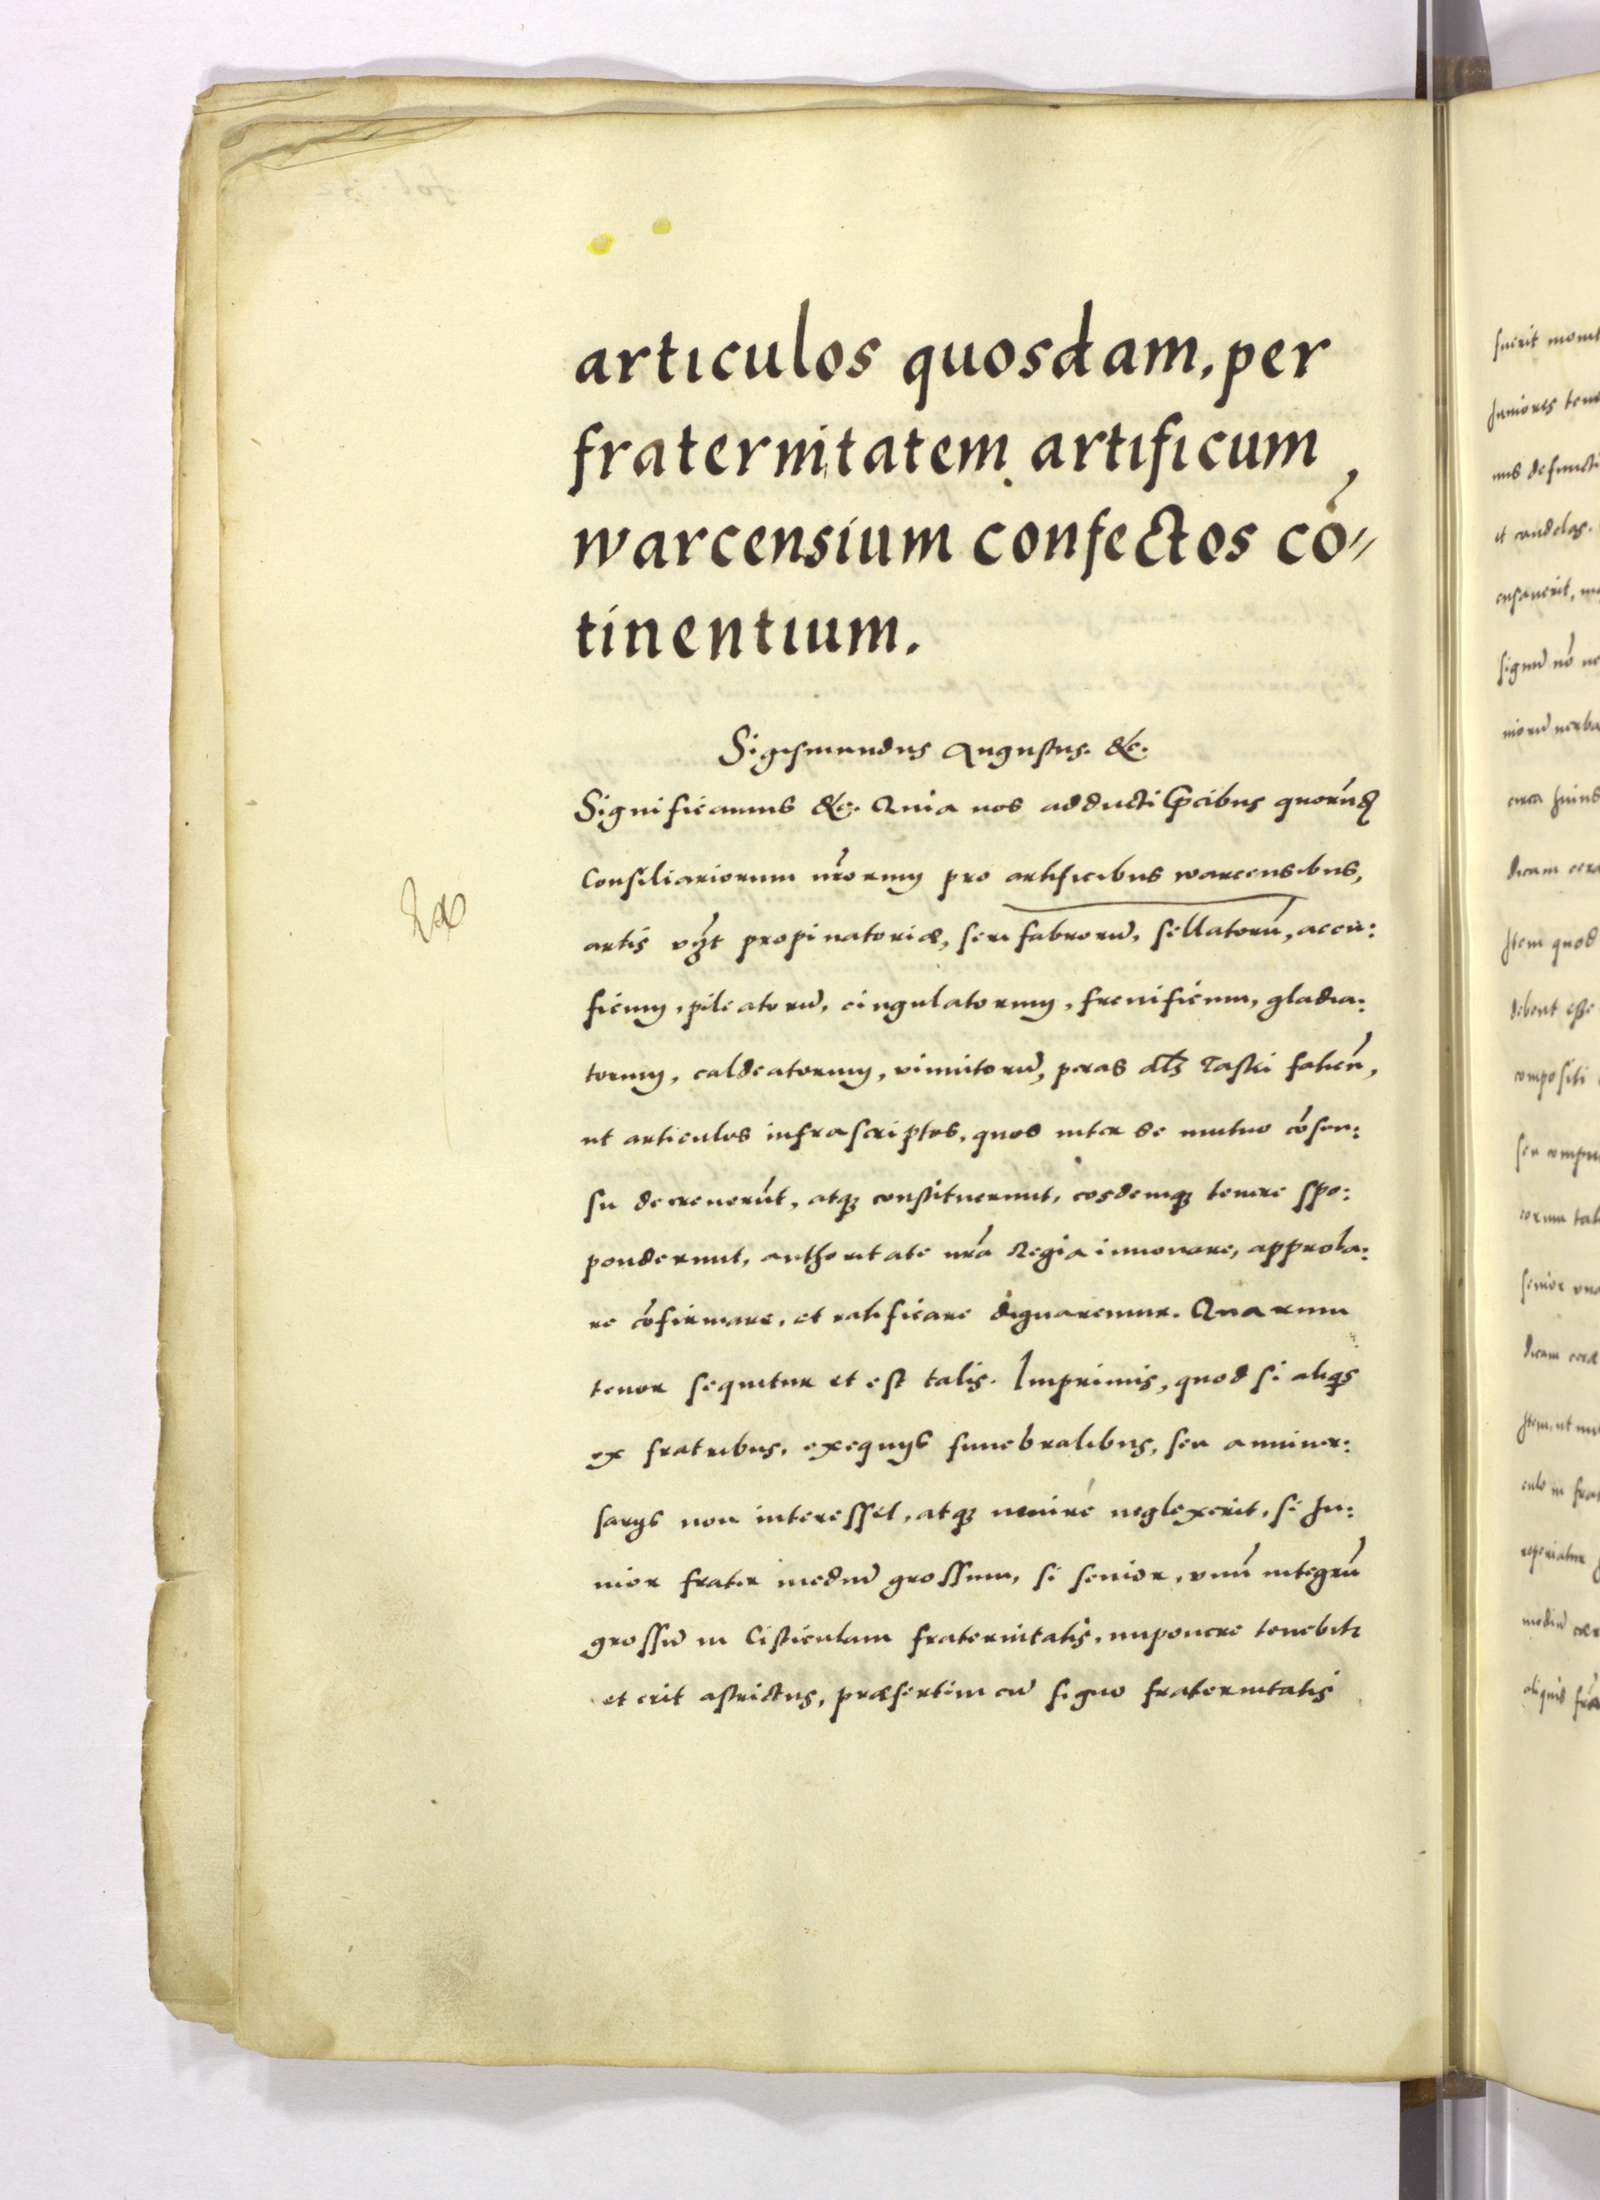 articulos quosdam, per
fraternitatem artificum
warcensium confectos cō=
tinentium.
Sigismundus Augustus. &c.
Significamus &c. Quia nos adducti p̃cibus quorūd
Consiliariorum nr̃orum pro artificibus warcensibus,
artis vzt propinatoriæ, serifabrorū, sellatorū, accu:
ficum, pileatorū, cingulatorum, frenificum, gladia:
torum, caldeatorum, vinnitorū, peras als Taski facien̄,
ut articulos infrascriptos, quos inter se mutuo cōsen:
su decreuerūt, atq3 constituerunt, eosdemq3 tenere spo:
ponderunt, authoritate nr̃a Regia innouare, approba:
re cōfirmare, et ratificare dignaremur. Quarum
tenor sequitur et est talis. Imprimis, quod si aliqs
ex fratribus, exequijs funebralibus, seu anniuer:
sarijs non interesset, atq3 uenire neglexerit, si Iu:
nior frater mediū grossum, si senior, vnū integrū
grossū in Cisticulam fraternitatis, imponere tenebit
et erit astrictus, præsertim cū signo fraternitatis
fuerit
Iuniores
defuncti
et candelas.
signū nō
circa huius
Item quod
debent esse
compositi
senior
Item, ut
reperiatur
mediū
aliquis